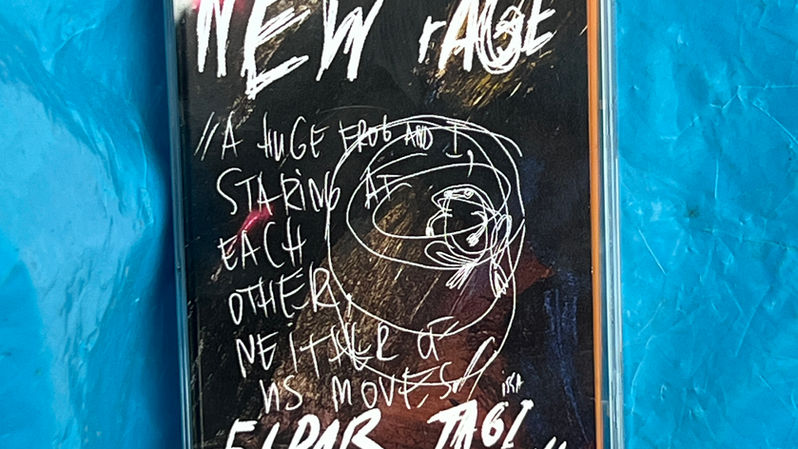 NEW rAGE
// A HUGE FROG AND I,
STARING AT
EACH
OTHER,
NEITHER OF
US MOVES//
ISSA
ELDAR TAGI